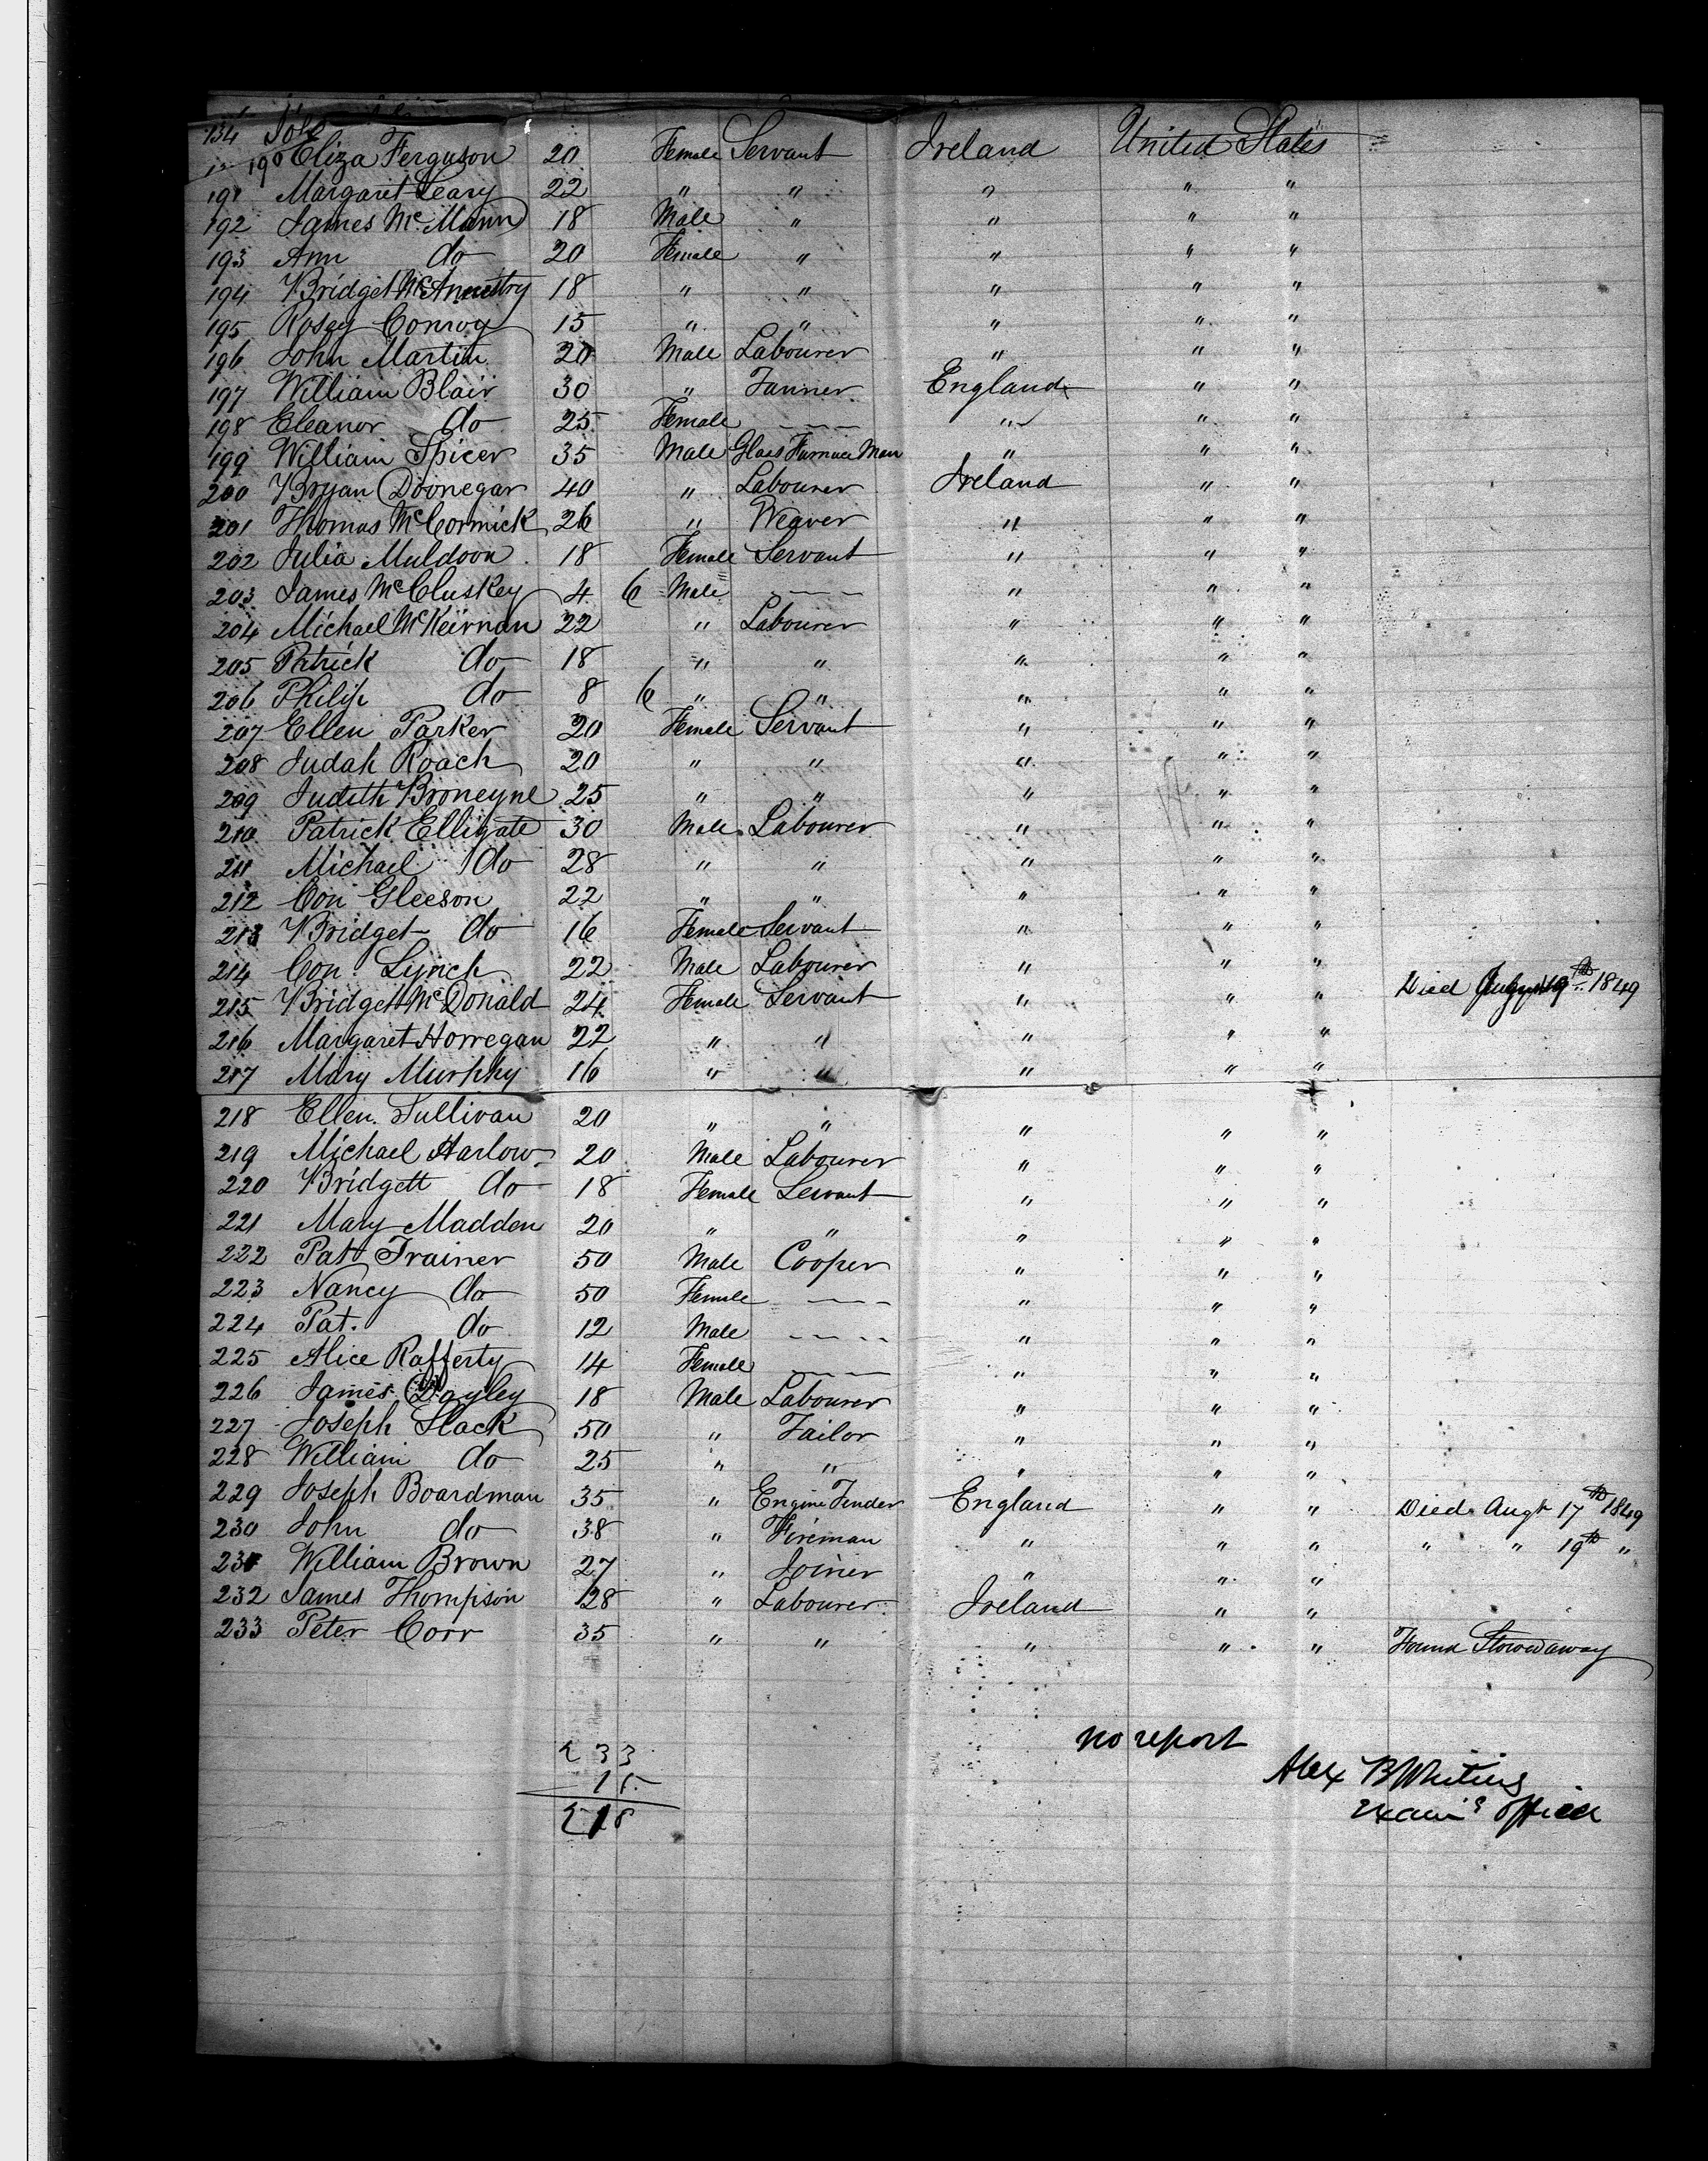 134 Jo
190 Eliza Ferguson 20 Female Servant Ireland United States
191 Margaret Leary 22 " " " " "
192 James McMann 18 Male " " " "
193 Ann do 20 Female " " " "
194 Bridget 18 " " " " "
195 Rosey Conroy 15 " " " " "
196 John Martin 20 Male Labourer " " "
197 William Blair 30 " Tanner England " "
198 Eleanor do 25 Female --- " " "
199 William Spicer 35 Male Glass Furnace Man " " "
200 Bryan Doonegar 40 " Labourer Ireland " "
201 Thomas McCormick 26 " Weaver " " "
202 Julia Muldoon 18 Female Servant " " "
203 James McCluskey 4 6 Male --- " " "
204 Michael McKeirnan 22 " Labourer " " "
205 Patrick do 18 " " " " "
206 Philip do 8 6 " " " " "
207 Ellen Parker 20 Female Servant " " "
208 Judah Roach 20 " " " " "
209 Judith Broneyne 25 " " " " "
210 Patrick Elligate 30 Male Labourer " " "
211 Michael do 28 " " " " "
212 Con Gleeson 22 " " " " "
213 Bridget do 16 Female Servant " " "
214 Con Lynch 22 Male Labourer " " "
215 Bridgett McDonald 24 Female Servant " " " Died 19th 1849
216 Margaret Horregan 22 " " " " "
217 Mary Murphy 16 " " " " "
218 Ellen Sullivan 20 " " " " "
219 Michael Harlow 20 Male Labourer " " "
220 Bridgett do 18 Female Servant " " "
221 Mary Madden 20 " " " " "
222 Pat Trainer 50 Male Cooper " " "
223 Nancy do 50 Female --- " " "
224 Pat. do 12 Male --- " " "
225 Alice Rafferty 14 Female --- " " "
226 James Dayley 18 Male Labourer " " "
227 Joseph Slack 50 " Tailor " " "
228 William do 25 " " " " "
229 Joseph Boardman 35 " Engine Tender England " " Died Augt 17th 1849
230 John do 38 " Fireman " " " " " 19th "
231 William Brown 27 " Joiner " " "
232 James Thompson 28 " Labourer Ireland " "
233 Peter Corr 35 " " " " " Found Stowedaway
233
15
218
no report
Alex B Whiting
Exam'g Officer